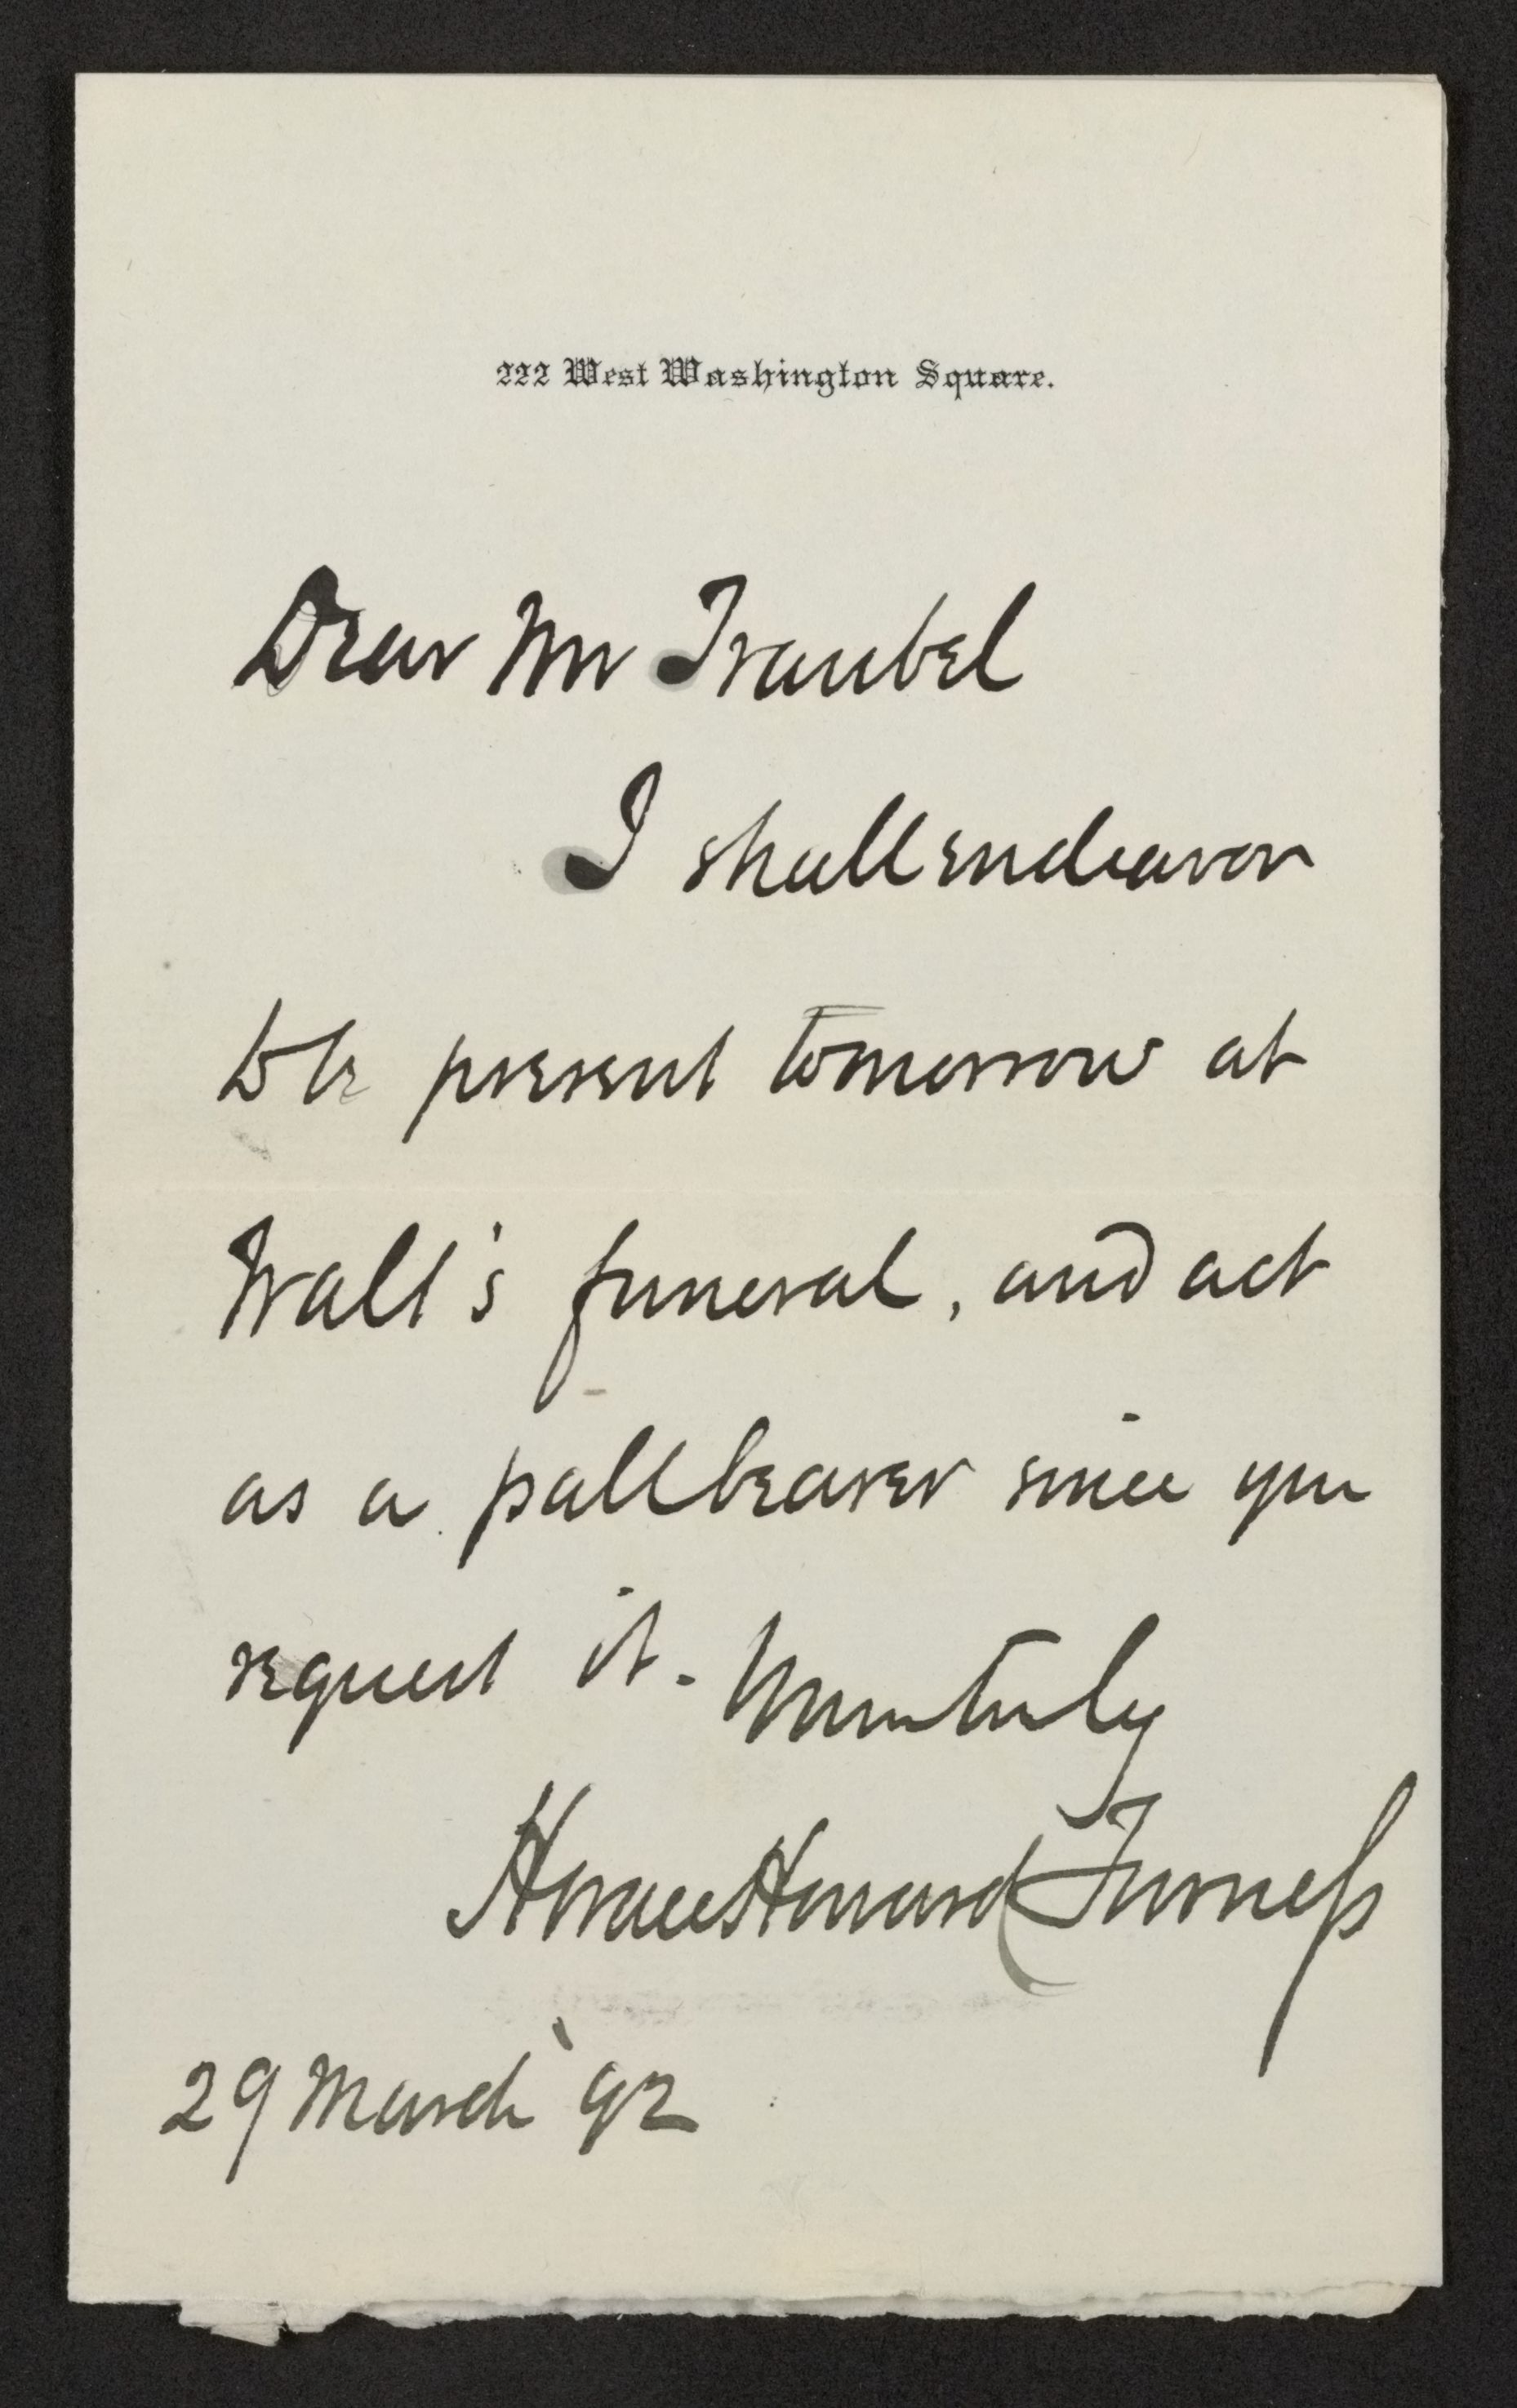 222 West Washington Square.
Dear Mr Traubel
I shall endeavor
to be present tomorrow at
Walt's funeral, and act
as a pallbearer since you
request it. Yours truly
Horace Howard Furness
29 March '92